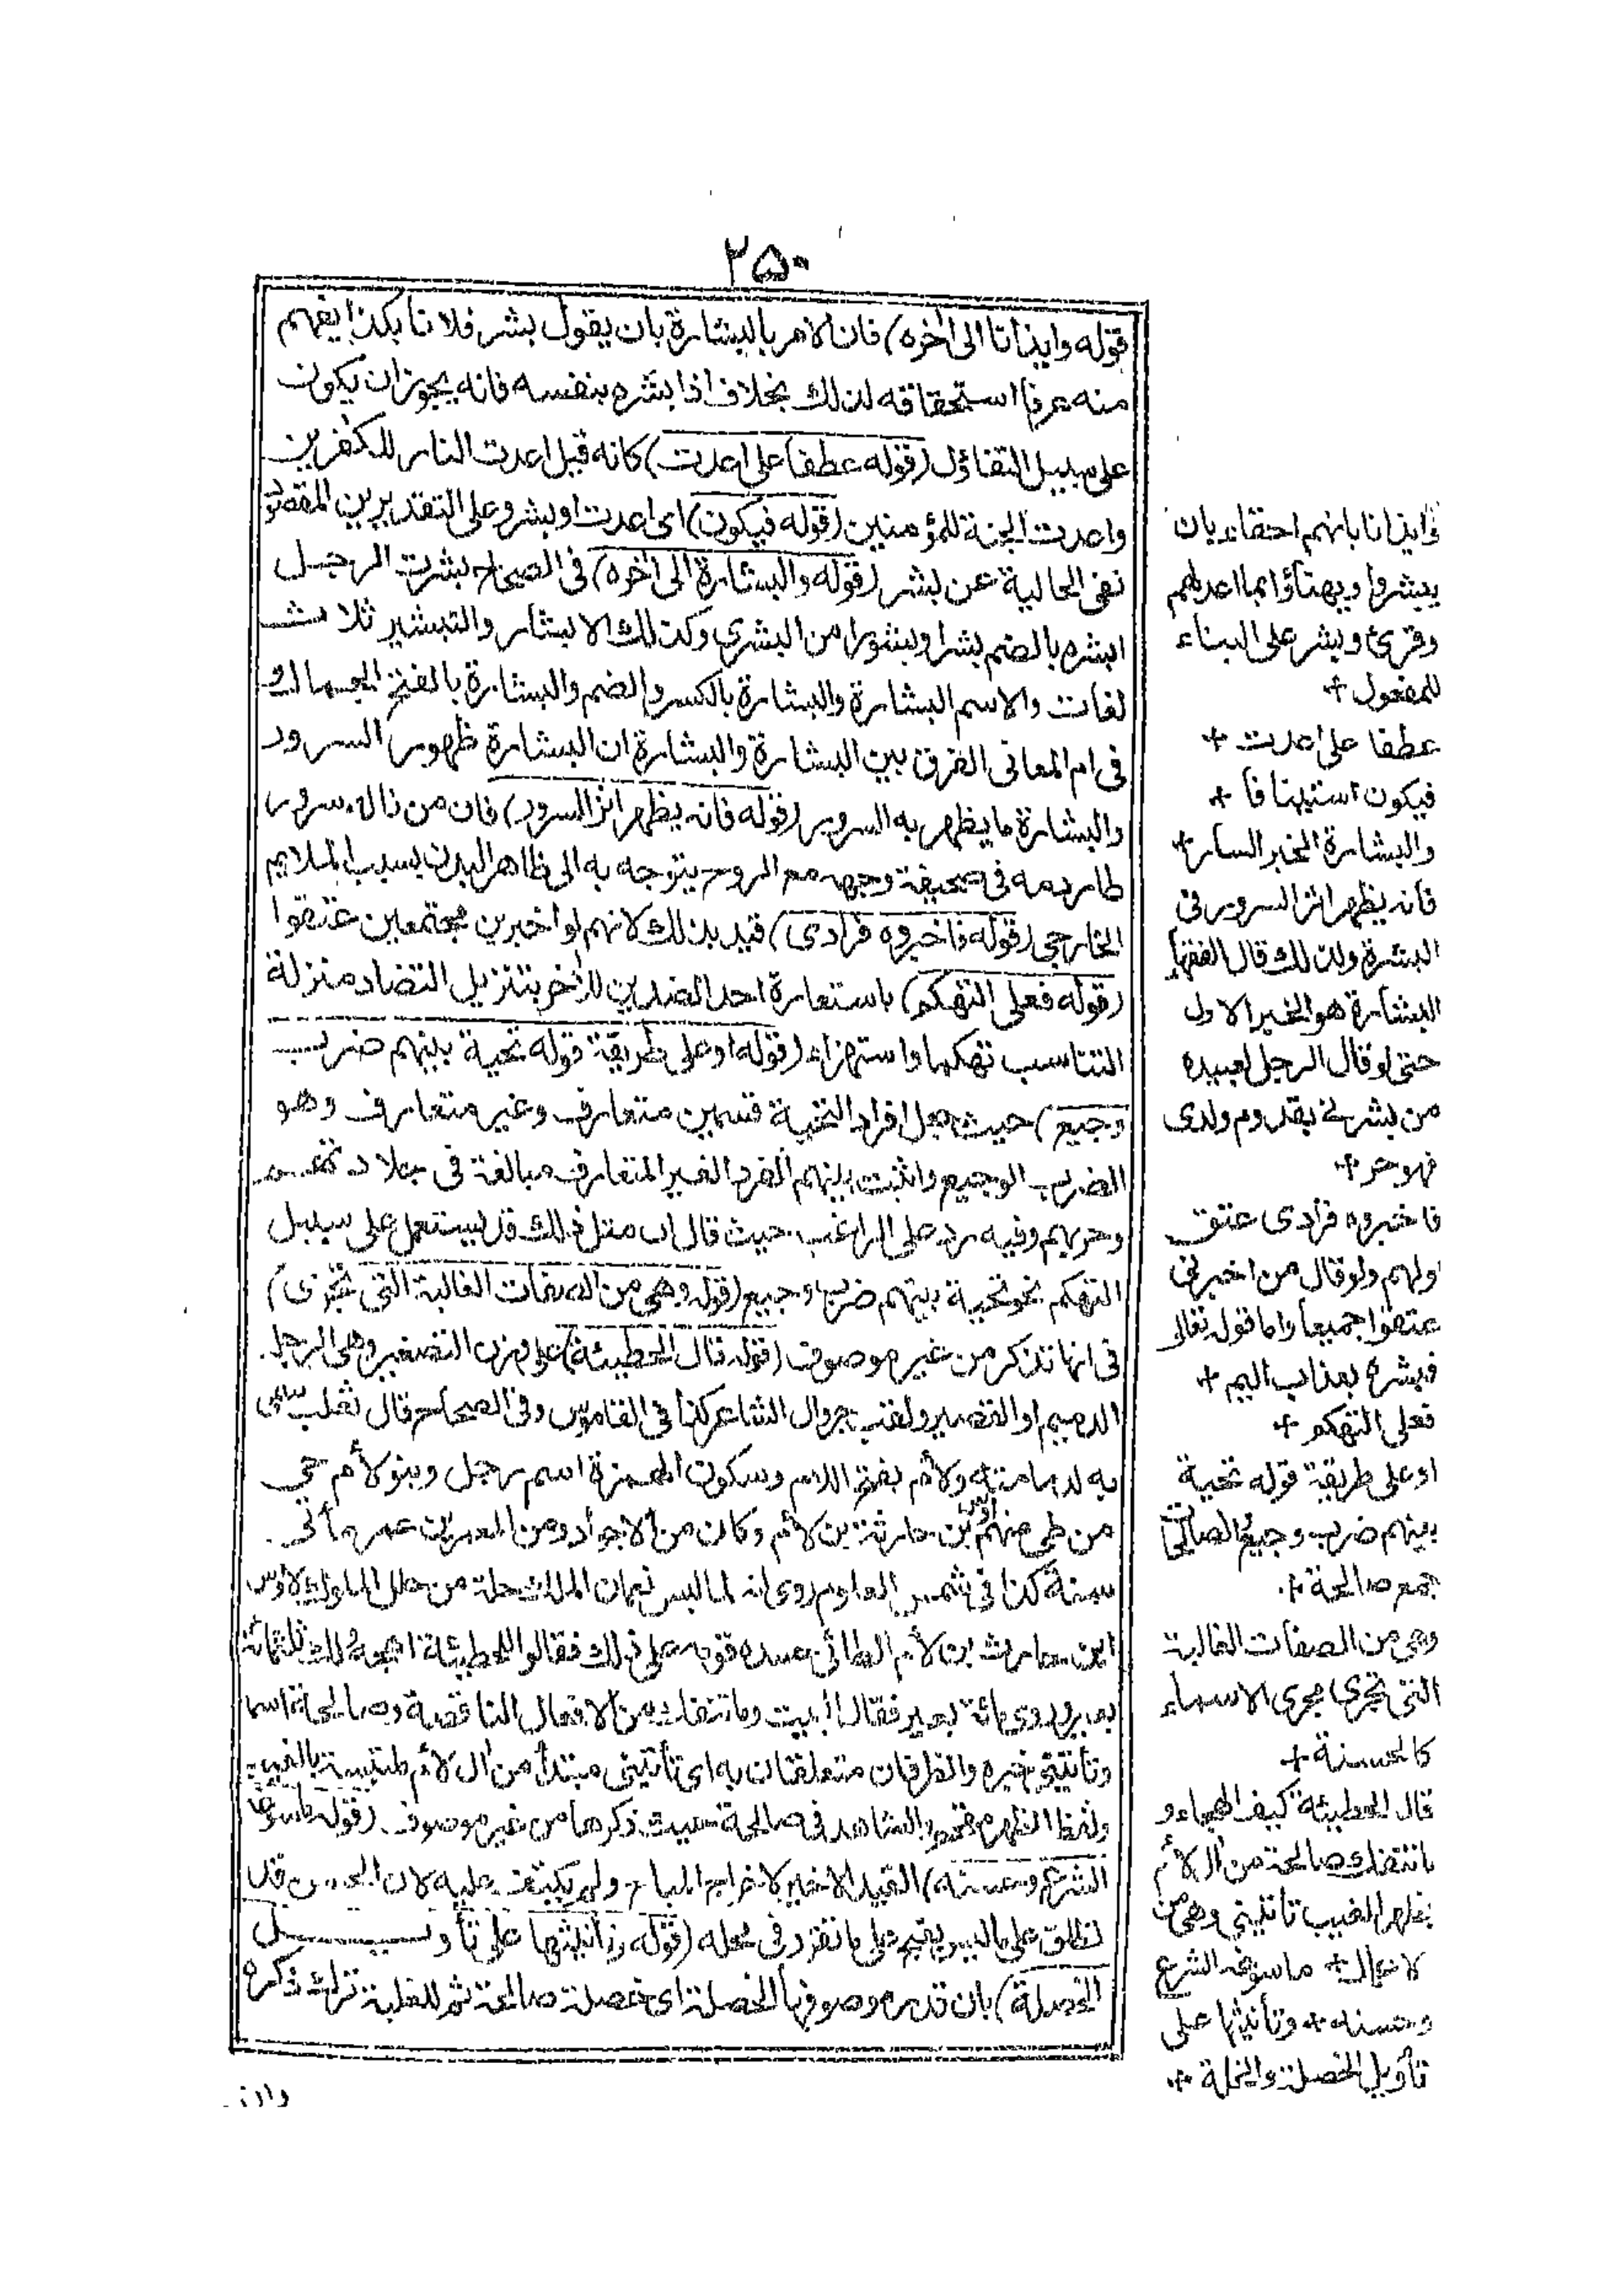 ٢٥٠
قوله وايذانا الى اخره) فان الامر بالبشارة بان يقول بشر فلانا بكذا يفهم
منه عرفا استحقاقه لذلك بخلاف اذا بشره بنفسه فانه يجوز ان يكون
على سبيل التفاؤل (قوله عطفا على اعدت) كانه قيل اعدت النار للكفرين
واعدت الجنة للمؤمنين (قوله فيكون) اى اعدت او بشر وعلى التقديرين المقصود
نفى الحالية عن بشر (قوله والبشارة الى اخره) فى الصحاح بشرت الرجل
ابشره بالضم بشرا وبشورا من البشرى وكذلك الابشار والتبشير ثلاث
لغات والاسم البشارة والبشارة بالكسر والضم والبشارة بالفتح الجمال و
فى ام المعانى الفرق بين البشارة والبشارة ان البشارة ظهور السرور
والبشارة ما يظهر به السرور (قوله فانه يظهر اثر السرور) فان من ناله سرور
طار دمه فى صحيفة وجهه مع الروح يتوجه به الى ظاهر البدن بسبب الملايم
الخارجى (قوله فاخبروه فرادى) قيد بذلك لانهم لو اخبرين مجتمعين عتقوا
(قوله فعلى التهكم) باستعارة احد الضدين للاخر بتنزيل التضاد منزلة
التناسب تهكما واستهزاء (قوله او على طريقة قوله تحية بينهم ضرب
وجيع) حيث جعل افراد التحية قسمين متعارف وغير متعارف وهو
الضرب الوجيع واثبت بينهم الفرد الغير المتعارف مبالغة فى
وحربهم وفيه رد على الراغب حيث قال ان مثل ذلك قد يستعمل على سبيل
التهكم نحو تحية بينهم ضرب وجيع (قوله وهى من الصفات الغالبة التى تجرى)
فى انها تذكر من غير موصوف (قوله قال الحطيئة) على وزن التصغير وهى الرجل
الدميم او القصير ولقب جرول الشاعر كذا فى القاموس وفى الصحاح قال ثعلب سمى
به لدمامته ولأم بفتح اللام وسكون الهمزة اسم رجل وبنو لأم حى
من طى منهم اوس بن حارثة بن لأم وكان من الاجواد ومن المعمرين عمره مأتى
سنة كذا فى شمس العلوم روى انه لما البس نعمان الملك حلة من حلل الملوك لاوس
ابن حارث بن لأم الطائى حسده قوم على ذلك فقالوا للحطيئة اهجه ولك ثلثمائة
بعير وروى مائة بعير فقال البيت وما تنفك من الافعال الناقصة وصالحة اسما
وتأتينى خبره والظرفان متعلقتان به اى تأتينى مبتدأ من ال لأم ملتبسة بالغيب
ولفظ الظهر مقحم والشاهد فى صالحة حيث ذكرها من غير موصوف (قوله ماسوغه
الشرع وحسنه) القيد الاخير لاخراج المباح ولم يكتف عليه لان الحسن قد
يطلق على ما ليس بقبيح على ما تفرد فى محله (قوله وتأنيثها على تأويل
الخصلة) بان قدر موصوفها الخصلة اى خصلة صالحة ثم للغلبة ترك ذكره
وايذانا بانهم احقاء بان
يبشروا ويهنأوا بما اعد لهم
وقرئ وبشر على البناء
للمفعول +
عطفا على اعدت +
فيكون استينافا +
والبشارة الخبر السار +
فانه يظهر اثر السرور فى
البشرة ولذلك قال الفقهاء
البشارة هو الخبر الاول
حتى لو قال الرجل لعبيده
من بشرنى بقدوم ولدى
فهو حر +
فاخبروه فرادى عتق
اولهم ولو قال من اخبرنى
عتقوا جميعا واما قوله تعالى
فبشره بعذاب اليم +
فعلى التهكم +
او على طريقة قوله تحية
بينهم ضرب وجيع والصالحات
جمع صالحة +
وهى من الصفات الغالبة
التى تجرى مجرى الاسماء
كالحسنة +
قال الحطيئة كيف الهجاء و
ما تنفك صالحة من ال لأم
بظهر الغيب تأتينى وهى من
الاعمال + ما سوغه الشرع
وحسنه + وتأنيثها على
تأويل الخصلة والخلة +